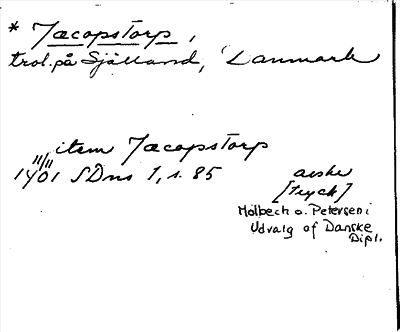 * Jacopstorp,
trol. på Själland, Danmark
item Jacopstorp
11/11
1401 SDns 1, s. 85 avskr
[tryck]
Molbech o. Petersen i
Udvalg af Danske
Dipl.